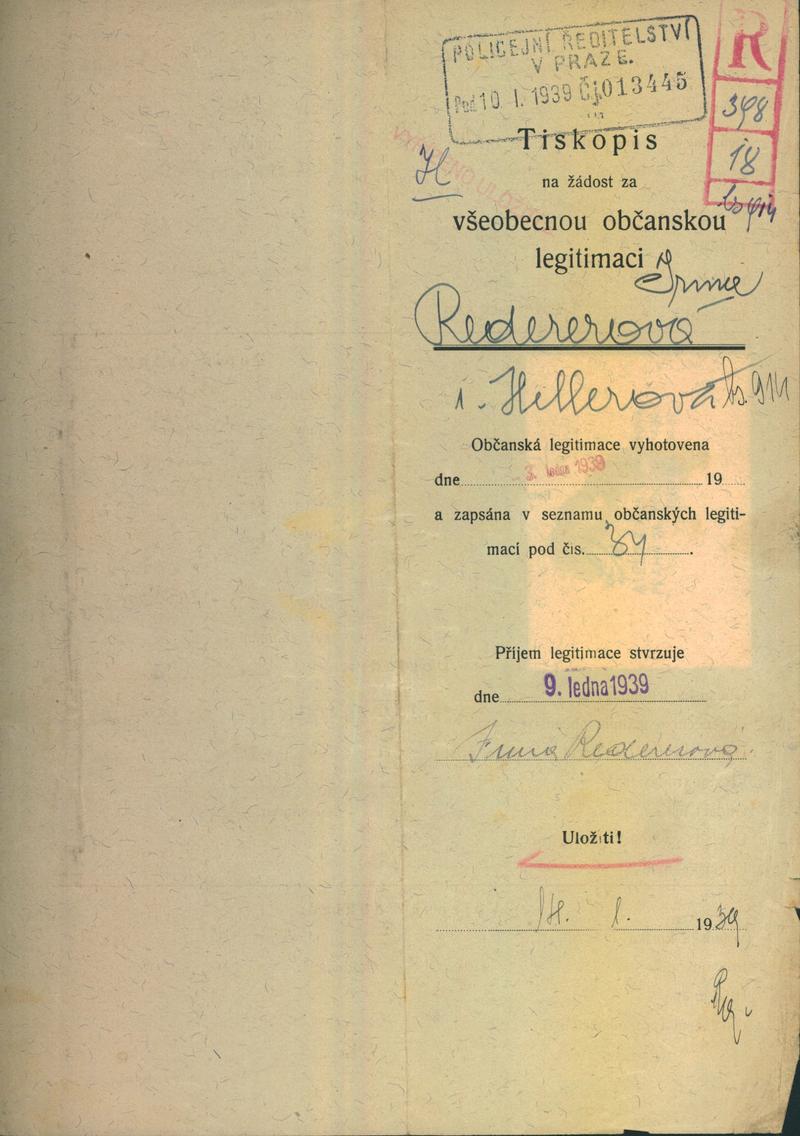 POLICEJNÍ ŘEDITELSTVÍ
V PRAZE.
10. I. 1939 Čj. 013445
R
398
18
Tiskopis
na žádost za
všeobecnou občanskou
legitimaci
Redererová
Hellerová
Občanská legitimace vyhotovena
dne 3. ledna 1939 19
a zapsána v seznamu občanských legiti-
mací pod čís.
Příjem legitimace stvrzuje
dne 9. ledna 1939
Irma Redererová
Uložiti!
14. I. 1939